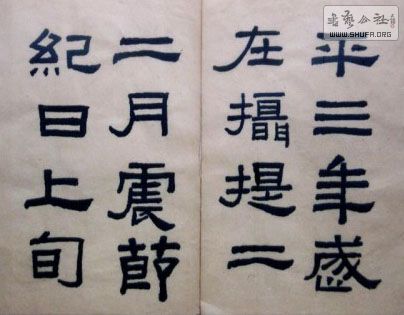 平三年歲
在攝提二
二月震節
紀日上旬
書藝公社
WWW.SHUFA.ORG